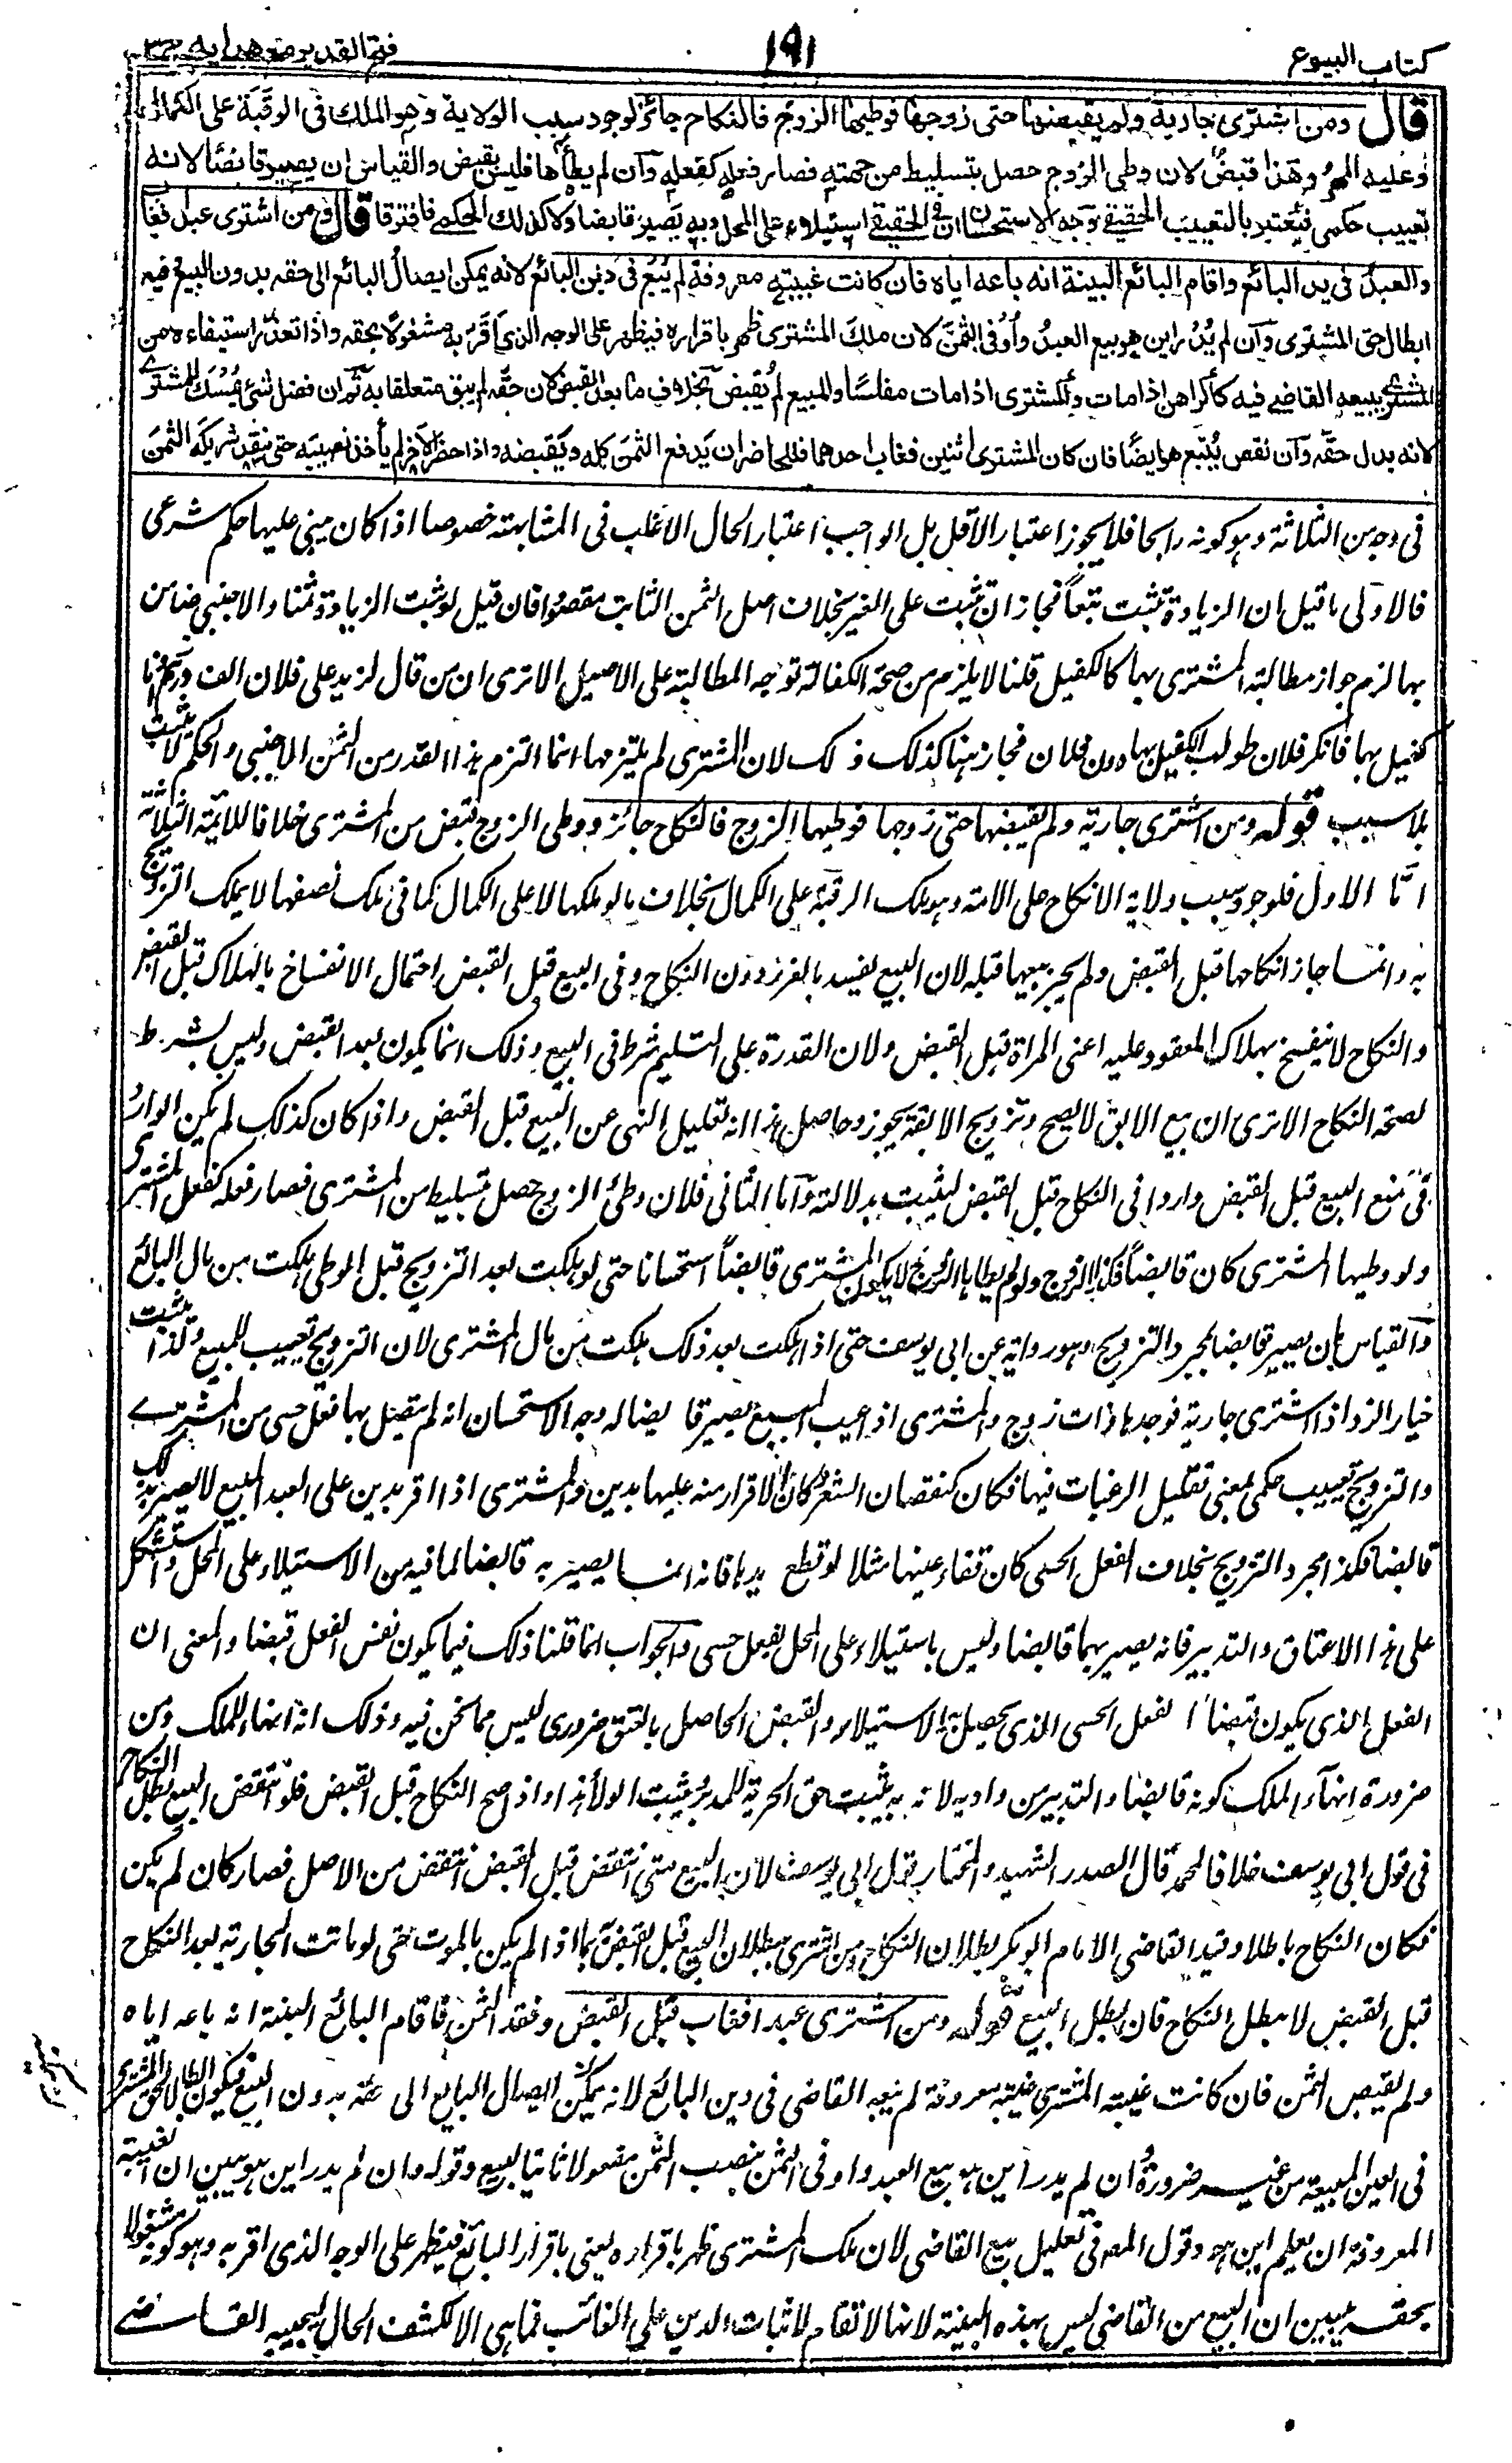 كتاب البيوع
١٩١
فتح القدير مع هدايه ج ٣
قال ومن اشترى جارية ولم يقبضها حتى زوجها فوطيها الزوج فالنكاح جائز لوجود سبب الولاية وهو الملك في الرقبة على الكمال
وعليه المهر وهذا قبض لان وطى الزوج حصل بتسليط من جهته فصار فعله كفعله وان لم يطأها فليس بقبض والقياس ان يصير قابضا لانه
تعييب حكمي فيعتبر بالتعييب الحقيقي وجه الاستحسان ان في الحقيقي استيلاء على المحل وبه يصير قابضا ولا كذلك الحكمي فافترقا قال ومن اشترى عبدا فغاب
والعبد في يد البائع واقام البائع البينة انه باعه اياه فان كانت غيبته معروفة لم يبع في دين البائع لانه يمكن ايصال البائع الى حقه بدون البيع وفيه
ابطال حق المشترى وان لم يدر اين هو بيع العبد واوفى الثمن لان ملك المشترى ظهر باقراره فيظهر على الوجه الذي اقر به مشغولا بحقه واذا تعذر استيفاءه من
المشترى يبيعه القاضي فيه كالراهن اذا مات والمشترى اذا مات مفلسا والمبيع لم يقبض بخلاف ما بعد القبض لان حقه لم يبق متعلقا به ثم ان فضل شئ يمسك للمشترى
لانه بدل حقه وان نقص يتبع هو ايضا فان كان المشترى اثنين فغاب احدهما فللحاضر ان يدفع الثمن كله ويقبضه واذا حضر الآخر لم يأخذ نصيبه حتى ينقد شريكه الثمن
في وجه من الثلاثة وهو كونه رابحا فلا يجوز اعتبار الاقل بل الواجب اعتبار الحال الاغلب في المشابهة خصوصا اذا كان يبنى عليها حكم شرعى
فالاولى ما قيل ان الزيادة تثبت تبعا فجاز ان تثبت على الغير بخلاف اصل الثمن الثابت مقصودا فان قيل لو ثبت الزيادة ثمنا والاجنبي ضامن
بها لزم جواز مطالبة المشترى بها كالكفيل قلنا لا يلزم من صحة الكفالة توجه المطالبة على الاصيل الا ترى ان من قال لزيد على فلان الف درهم وانا
كفيل بها فانكر فلان طولب الكفيل بها دون فلان فجاز هنا كذلك وذلك لان المشترى لم يلتزمها انما التزم هذا القدر من الثمن الاجنبي والحكم لا يثبت
بلا سبب قوله ومن اشترى جارية ولم يقبضها حتى زوجها فوطيها الزوج فالنكاح جائز ووطى الزوج قبض من المشترى خلافا للائمة الثلاثة
اما الاول فلوجود سبب ولاية الانكاح على الامة وهو ملك الرقبة على الكمال بخلاف ما لو ملكها لا على الكمال كما في ملك نصفها لا يملك التزويج
به وانما جاز انكاحها قبل القبض ولم يجز بيعها قبله لان البيع يفسد بالغرر دون النكاح وفي البيع قبل القبض احتمال الانفساخ بالهلاك قبل القبض
والنكاح لا ينفسخ بهلاك المعقود عليه اعنى المراة قبل القبض ولان القدرة على التسليم شرط في البيع وذلك انما يكون بعد القبض وليس بشرط
لصحة النكاح الا ترى ان بيع الابق لا يصح وتزويج الابقة يجوز وحاصل هذا انه تعليل النهى عن البيع قبل القبض واذا كان كذلك لم يكن الوارد
في منع البيع قبل القبض واردا في النكاح قبل القبض ليثبت بدلالته واما الثانى فلان وطئ الزوج حصل بتسليط من المشترى فصار فعله كفعل المشترى
ولو وطيها المشترى كان قابضا فكذا الزوج ولو لم يطاها الزوج لا يكون المشترى قابضا استحسانا حتى لو هلكت بعد التزويج قبل الوطى هلكت من مال البائع
والقياس ان يصير قابضا بمجرد التزويج وهو رواية عن ابي يوسف حتى اذا هلكت بعد ذلك هلكت من مال المشترى لان التزويج تعييب للمبيع ولذا يثبت
خيار الرد اذا اشترى جارية فوجدها ذات زوج والمشترى اذا عيب المبيع يصير قابضا له وجه الاستحسان انه لم يتصل بها فعل حسى من المشترى
والتزويج تعييب حكمى بمعنى تقليل الرغبات فيها فكان كنقصان السعر وكالاقرار منه عليها بدين والمشترى اذا اقر بدين على العبد المبيع لا يصير بذلك
قابضا فكذا مجرد التزويج بخلاف الفعل الحسى كان فقاء عينها مثلا او قطع يدها فانه انما يصير به قابضا لما فيه من الاستيلاء على المحل واستشكل
على هذا الاعتاق والتدبير فانه يصير بهما قابضا وليس باستيلاء على المحل بفعل حسى والجواب انما قلنا ذلك فيما يكون نفس الفعل قبضا والمعنى ان
الفعل الذي يكون قبضا الفعل الحسى الذي يحصل به الاستيلاء والقبض الحاصل بالعتق ضرورى ليس مما نحن فيه وذلك انه انهاء للملك ومن
ضرورة انهاء الملك كونه قابضا والتدبير من واديه لانه به يثبت حق الحرية للمدبر ويثبت الولاء هذا واذا صح النكاح قبل القبض فلو انتقض البيع بطل النكاح
في قول ابي يوسف خلافا لمحمد قال الصدر الشهيد والمختار قول ابي يوسف لان البيع متى انتقض قبل القبض انتقض من الاصل فصار كان لم يكن
فكان النكاح باطلا وقيد القاضي الامام ابو بكر بطلان النكاح ببطلان البيع قبل القبض بما اذا لم يكن بالموت حتى لو ماتت الجارية بعد النكاح
قبل القبض لا يبطل النكاح وان بطل البيع قوله ومن اشترى عبدا فغاب قبل القبض ونقد الثمن فاقام البائع البينة انه باعه اياه
ولم يقبض الثمن فان كانت غيبة المشترى غيبة معروفة لم يبعه القاضي في دين البائع لانه يمكن ايصال البايع الى حقه بدون البيع فيكون ابطالا لحق المشترى
في العين المبيعة من غير ضرورة وان لم يدر اين هو بيع العبد واوفى الثمن بنصب الثمن مفعولا ثانيا لبيع وقوله وان لم يدر اين هو يبين ان الغيبة
المعروفة ان يعلم اين هو وقول المصه في تعليل بيع القاضي لان ملك المشترى ظهر باقراره يعنى باقرار البائع فيظهر على الوجه الذي اقر به وهو كونه مشغولا
بحقه يبين ان البيع من القاضي ليس بهذه البينة لانها لا تقام لاثبات الدين على الغائب فما هى الا لكشف الحال ليجيبه القاضي